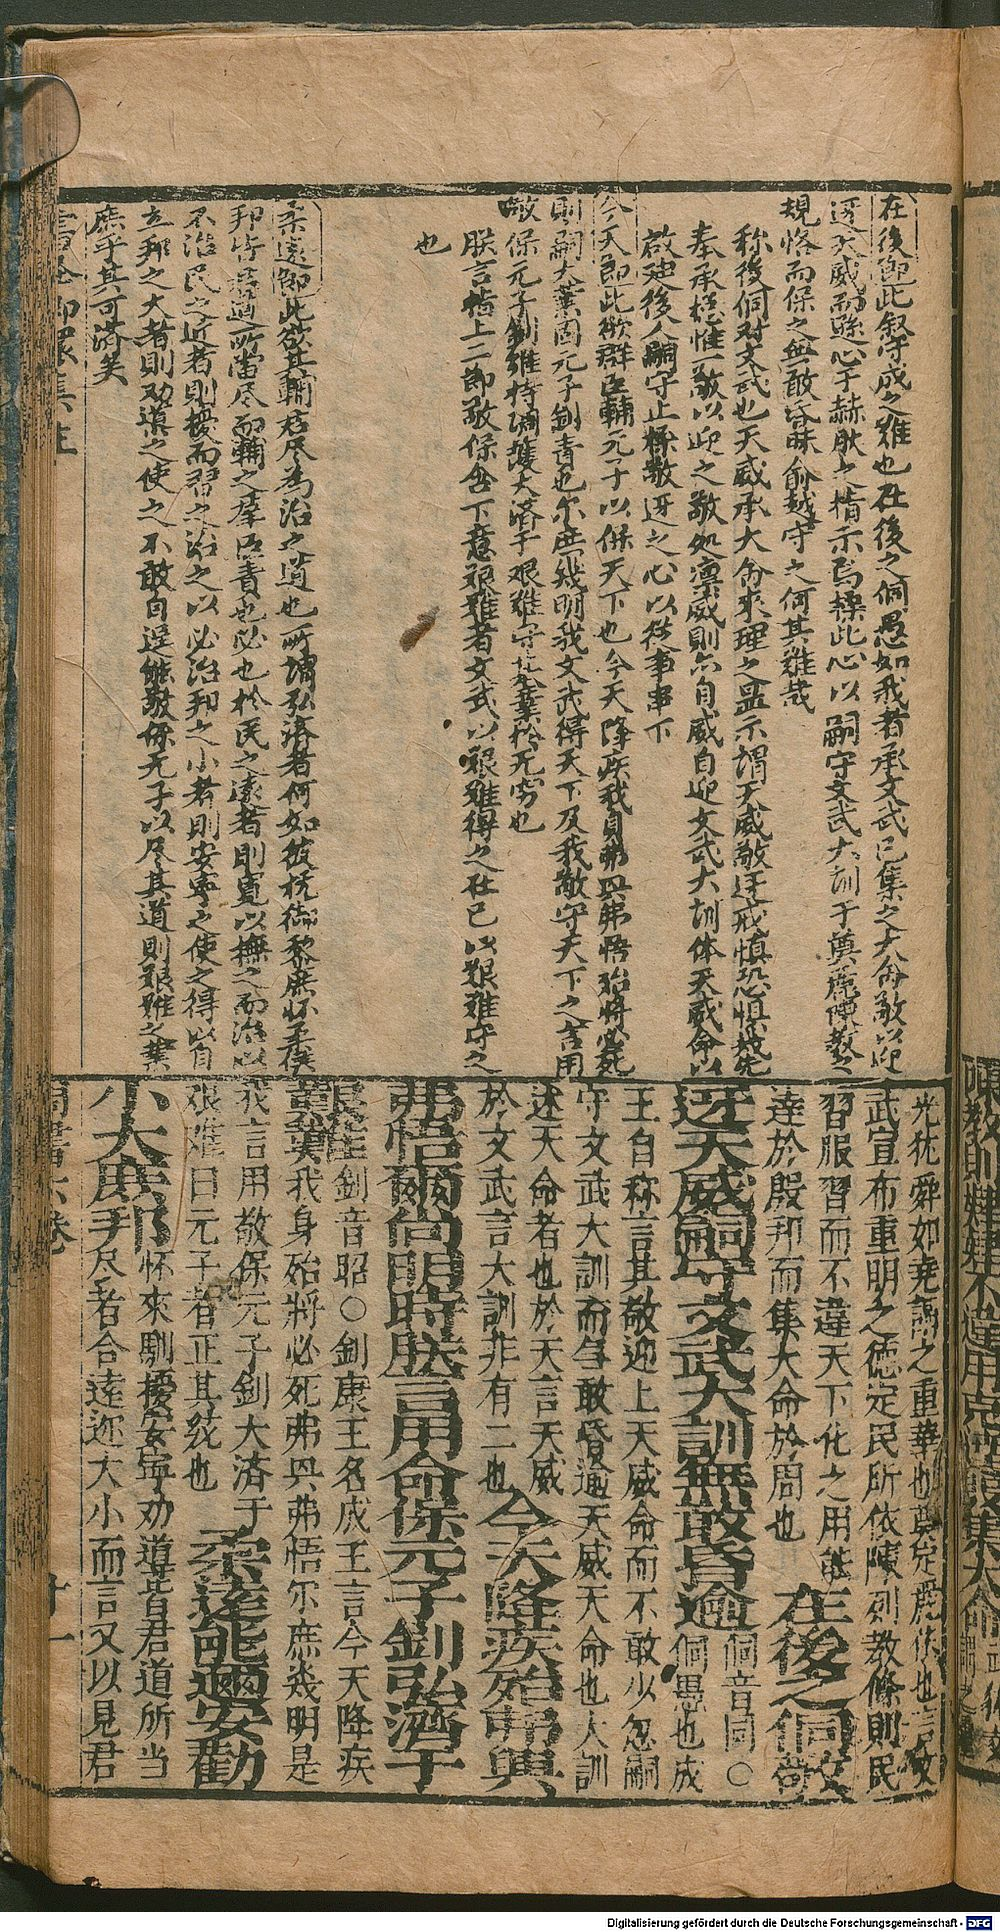 在後節此叙守成之难也在後之侗愚如我者承文武已集之大命敬以迎
迓天威而兢心于赫肰之指示焉操此心以嗣守文武大訓于奠麗陳教之
規恪而保之無敢昏昧俞越守之何其難哉
称後侗对文武也天威承大命來理之显示謂天威敬迓戒慎恐惧兢兢
奉承穩惟一敬以迎之敬処凛威則亦自威自迎文武大訓体天威命以
啟廸後人嗣守止操敬迓之心以從事串下
今天節此欲群臣輔元子以保天下也今天降疾我身弗興弗悟殆將必死
則嗣大業固元子釗責也尔庶幾明我文武得天下及我敬守天下之言用
敬保元子釗維持調護大済于艰难守先業於无穷也
朕言指上二節敬保含下意艰难者文武以艰难得之在己以艰难守之
也
柔遠節此欲其輔君尽為治之道也所謂弘济者何如彼撫御黎庶怀柔侯
邦皆君道所當尽而輔之羣臣責也必也於民之遠者則寬以撫之而治以
不治民之近者則擾而習之治之以必治邦之小者則安寧之使之得以自
立邦之大者則劝導之使之不敢自逞能敬保元子以尽其道則艰难之業
庶乎其可済矣
光犹舜如尭謂之重華也奠定麗依也言文
武宣布重明之德定民所依陳列教條則民
習服習而不違天下化之用能
達於殷邦而集大命於周也 在後之侗敬
迓天威嗣守文武大訓無敢昏逾 侗音同○侗愚也成
王自称言其敬迎上天威命而不敢少忽嗣
守文武大訓而無敢昏逾天威天命也大訓
述天命者也於天言天威
於文武言大訓非有二也 今天降疾殆弗興
弗悟爾尚明時朕言用敬保元子釗弘濟于
艱難 釗音昭○釗康王名成王言今天降疾
我身殆將必死弗興弗悟尔庶幾明是
我言用敬保元子釗大済于
艰难曰元子者正其統也 柔遠能邇安勸
小大庶邦 怀來馴擾安寧劝導皆君道所当
尽者合遠迩大小而言又以見君
周書六卷 廿一